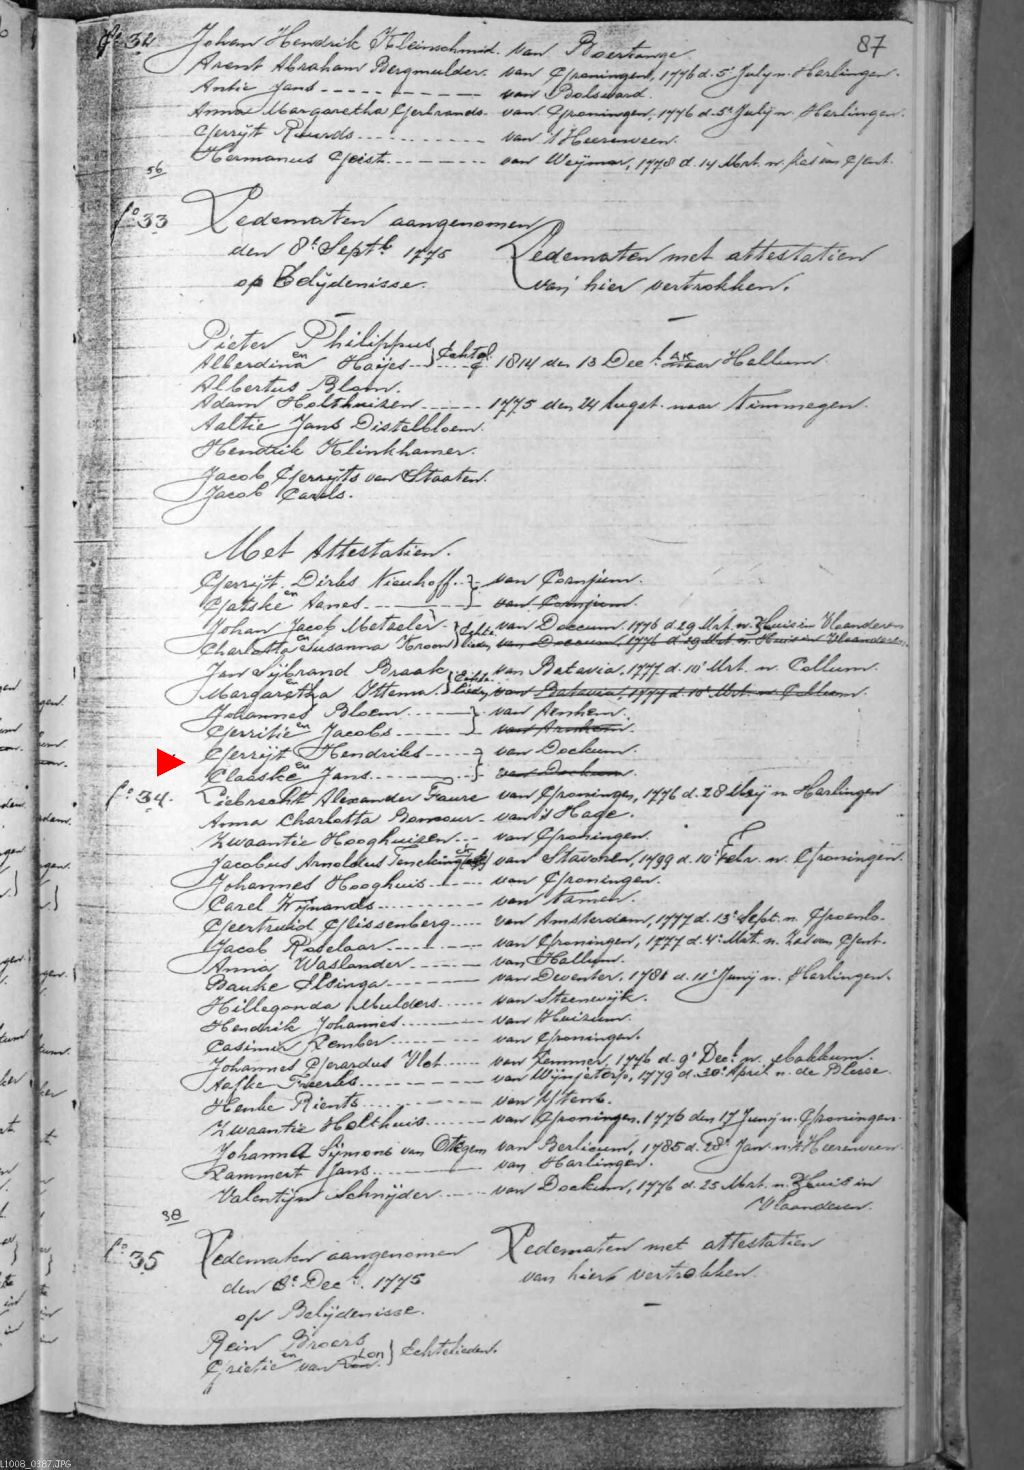 fo 32 Johan Hendrik Kleinschmid. van Boertange. 87
Arent Abraham Bergmulder. van Groningen, 1776 d. 5' July n. Harlingen.
Antie Jans - - - - - - van Bolsward.
Anna Margaretha Gerbrands. van Groningen, 1776 d. 5' July n. Harlingen.
Gerryt Ruurds - - - van 't Heerenveen.
Hermanus Geist. - - - - van Weymar, 1778 d. 14 Mrt. n. Sas van Gent.
56
fo 33 Ledematen aangenomen
den 8' Septb. 1775
op Belydenisse.
Ledematen met attestatien
van hier vertrokken.
Pieter Philippus
en
Alberdina Hayes - - } Echtel. 1814 den 13 Dec. naar Hallum.
Albertus Blom.
Adam Holthuizen - - - - 1775 den 24 Augst. naar Nimmegen.
Aaltie Jans Distelbloem.
Hendrik Klinkhamer.
Jacob Gerryts van Staaten.
Jacob Carels.
Met Attestatien.
Gerryt Dirks Nieuhoff. - } van Cornjum.
en
Gatske Annes - - - - } van Cornjum.
Johan Jacob Metzeler } Echte- van Doccum, 1776 d. 29 Mrt. n. Huis in Vlaanderen
en
Charlotta Susanna Kroon } lieden van Doccum 1776 d. 29 Mrt. n. Huis in Vlaanderen.
Jan Sybrand Braak } Echte- van Batavia, 1777 d. 10' Mrt. n. Collum.
en
Margaretha Ottema } lieden van Batavia, 1777 d. 10' Mrt. n. Collum.
Johannes Bloem - - - - } van Arnhem.
en
Gerritie Jacobs - - - - } van Arnhem.
Gerryt Hendriks - - - - } van Dockum.
en
Claaske Jans - - - - } van Dockum.
fo 34. Liebrecht Alexander Faure van Groningen, 1776 d. 28 Mey n. Harlingen
Anna Charlotta van 's Hage.
Zwaantie Hooghuizen - - van Groningen.
Jacobus Arnoldus van Stavoren, 1799 d. 10' Febr. n. Groningen.
Johannes Hooghuis - - - van Groningen.
Carel Wynands - - - - van Namen.
Geertruid Glissenberg - - - van Amsterdam, 1777 d. 13' Sept. n. Groenlo.
Jacob Roselaar - - - - van Groningen, 1777 d. 4' Mrt. n. Zas van Gent.
Anna Waslander - - - - van Hallum.
Bauke Elsinga - - - - van Deventer, 1781 d. 11' Juny n. Harlingen.
Hillegonda Mulders - - - van Steenwyk.
Hendrik Johannes - - - - van Huizum.
Casimir Kember - - - - van Groningen.
Johannes Gerardus Vlot - - - van Lemmer, 1776 d. 9' Dec. n. Makkum.
Aafke Freerks - - - - van Wynjeterp, 1779 d. 30' April n. de Blesse.
Henke Rients - - - - van Ytens.
Zwaantie Holthuis - - - van Groningen, 1776 den 17 Juny n. Groningen.
Johanna Symons van Otegem van Berlicum, 1785 d. 28' Jan. n. 't Heerenveen.
Lammert Jans - - - - van Harlingen.
Valentyn Schnyder - - - van Dockum, 1776 d. 25 Mrt. n. Huis in
Vlaanderen.
38
fo 35 Ledematen aangenomen
den 8' Decb. 1775
op Belydenisse.
Ledematen met attestatien
van hier vertrokken.
Rein Broers
en
Grietie van Lon } Echtelieden.
L1008_0387.JPG